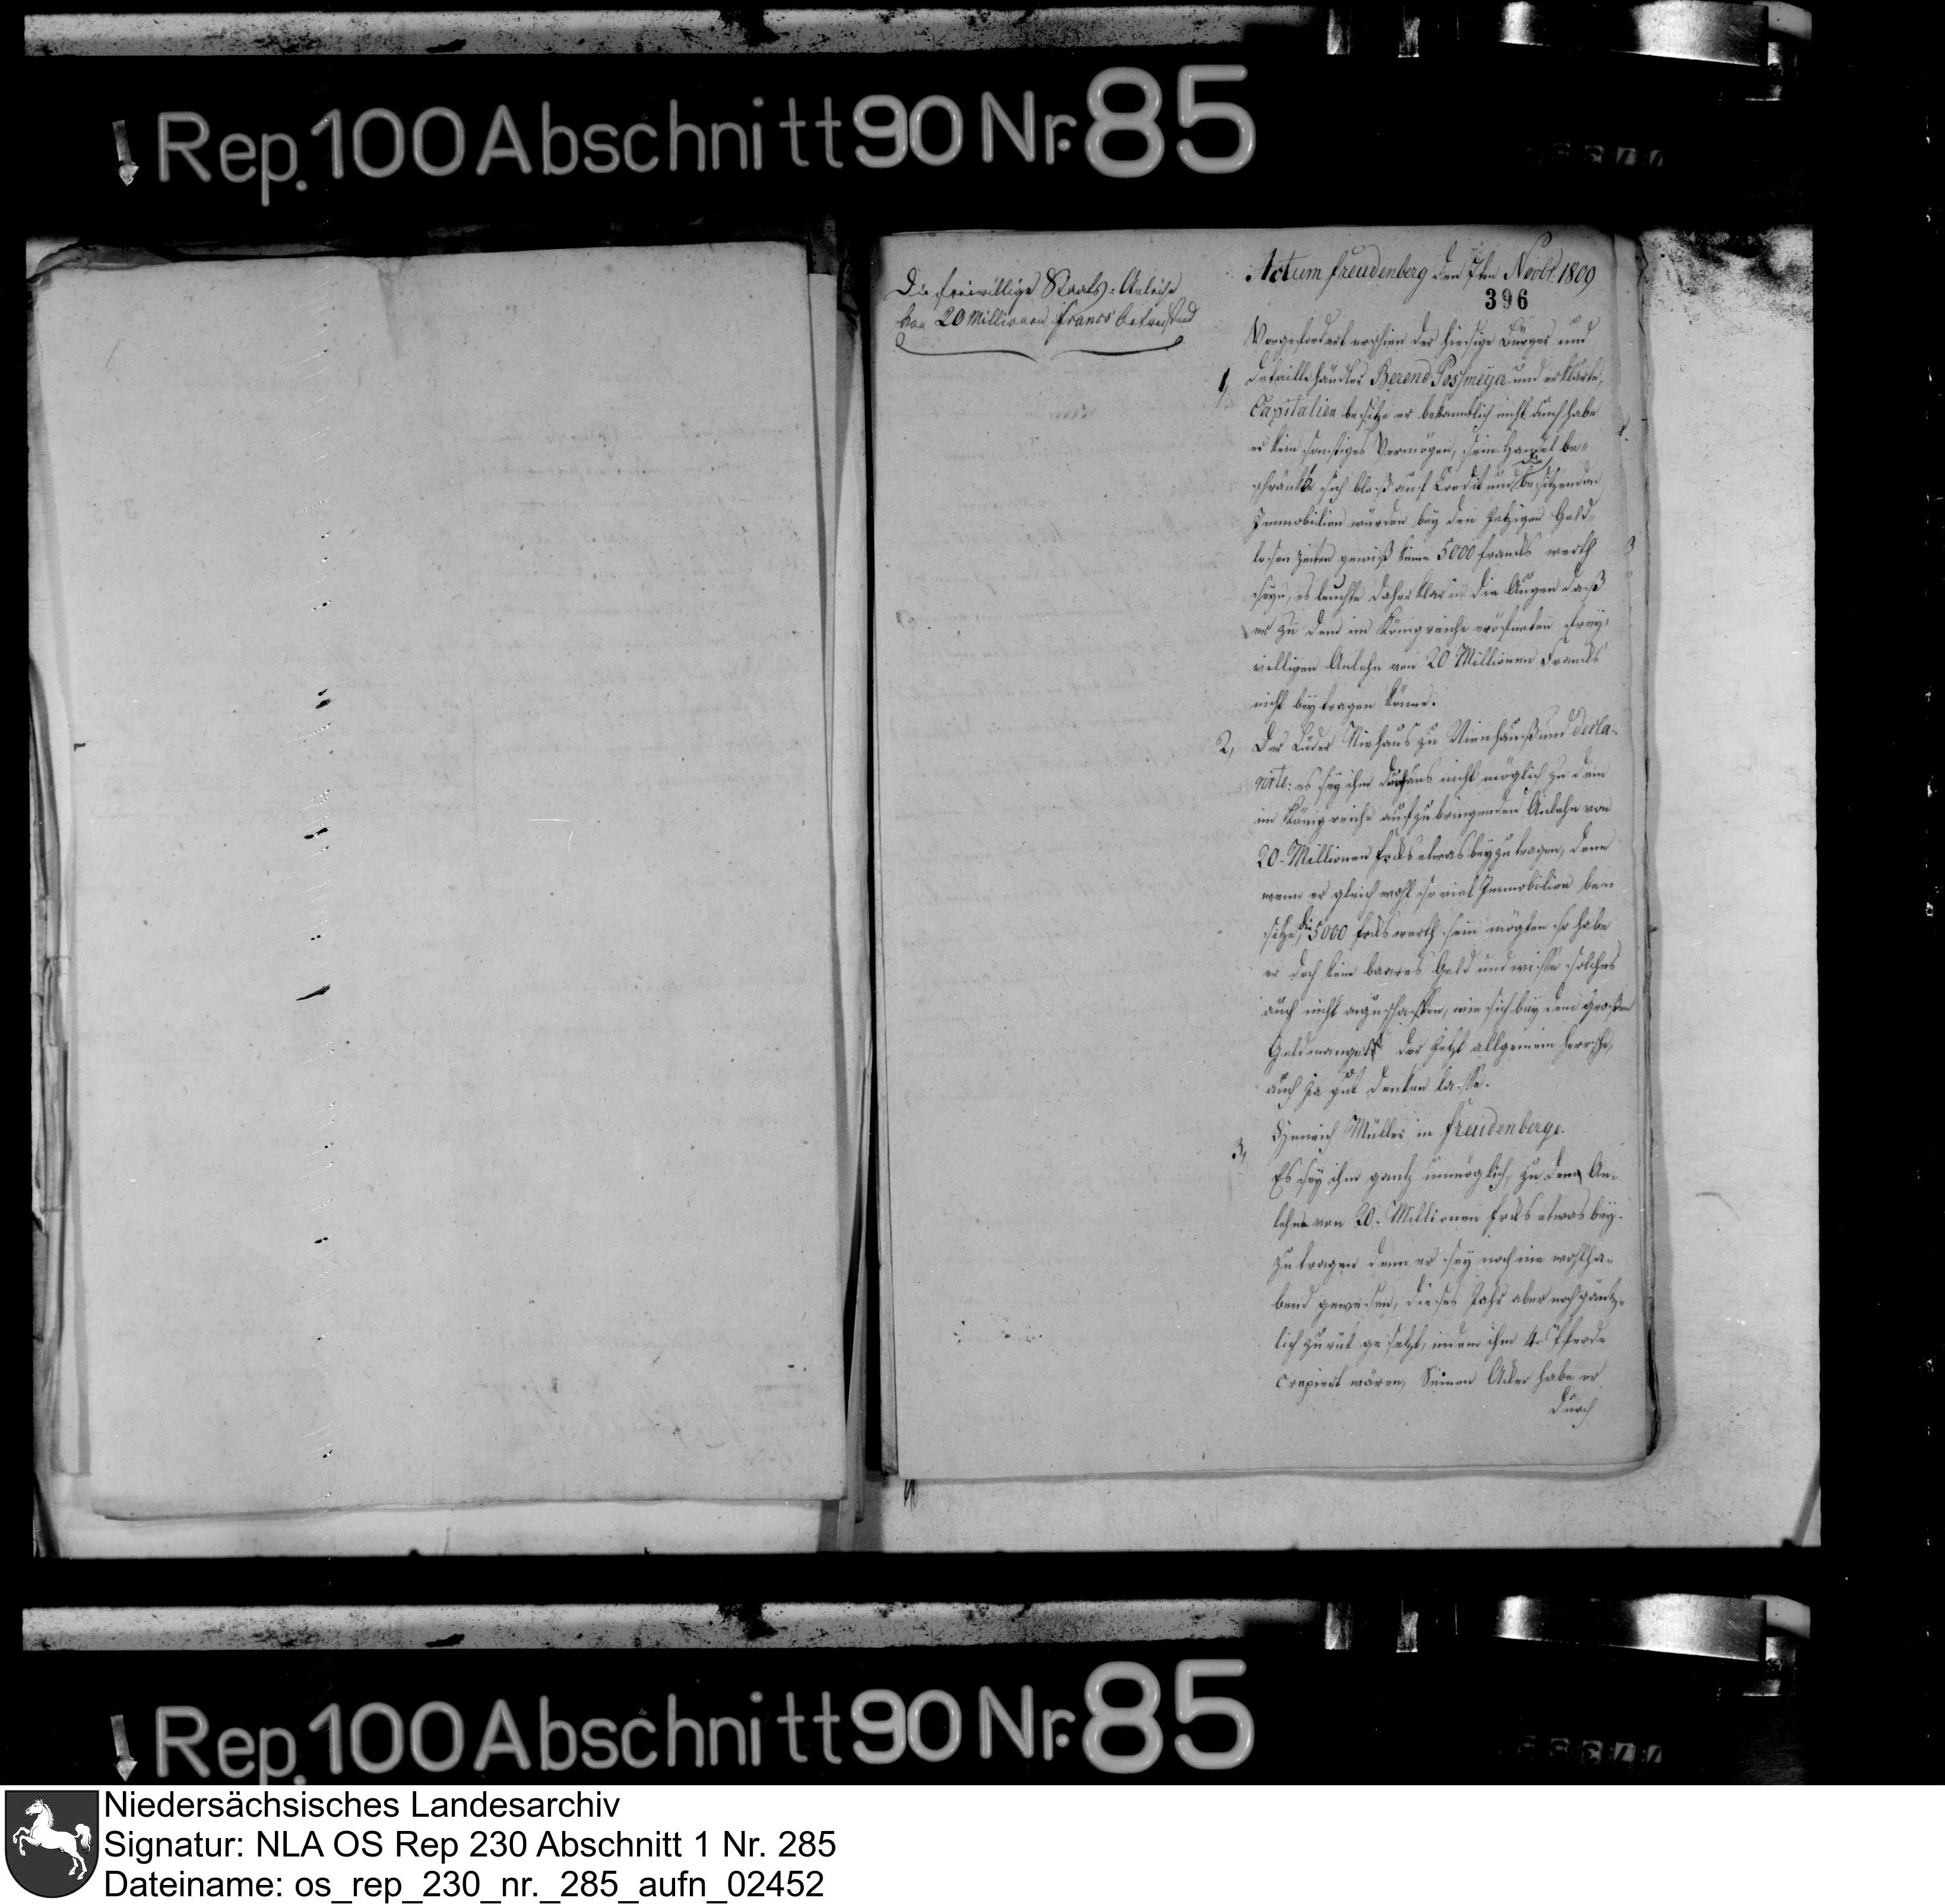 Rep. 100 Abschnitt 90 Nr. 85
Die freiwillige Staats-Anleihe
von 20 Millionen francs betreffend
Actum freudenberg den 7ten Novbr. 1809
396
Vorgefordert erschien der hiesige Bürger und
1, Detaillehändler Berend Possmeÿer und erklärte,
Capitalien besitze er bekanntlich nicht auch habe
er kein sonstiges Vermögen, sein Handel be-
schränke sich bloß auf Credit und die besitzenden
Immobilien würden beÿ den jetzigen Geld-
losen Zeiten gewiß keine 5000 francks werth
seÿn, es leuchte daher klar in die Augen daß
er zu dem im Königreiche eröfneten freÿ-
willigen Anlehn von 20 Millionen Francks
nicht beÿtragen könne.
2, Der Lüder Niehaus zu Nienhauß und decla-
rirte: es seÿ ihm durchaus nicht möglich zu dem
im Königreiche aufzubringenden Anlehn von
20. Millionen frcks etwas beÿzutragen, denn
wenn er gleich wohl so viel Immobilien be-
sitze, die 5000 frcks werth sein mögten so habe
er doch kein baares Geld und wisse solches
auch nicht anzuschaffen, wie sich beÿ dem großen
Geldmangel der jetzt allgemein herrsche,
auch ja gut denken lasse.
3, Henrich Müller in freudenberge.
Es seÿ ihm gantz unmöglich, zu dem An-
lehn von 20. Millionen frcks etwas beÿ-
zutragen denn er seÿ noch nie wohlha-
bend gewesen, dieses Jahr aber noch gäntz-
lich zurük gesetzt, indem ihm 4. Pferde
crepiert wären, Seinen Acker habe er
durch
Rep. 100 Abschnitt 90 Nr. 85
Niedersächsisches Landesarchiv
Signatur: NLA OS Rep 230 Abschnitt 1 Nr. 285
Dateiname: os_rep_230_nr._285_aufn_02452